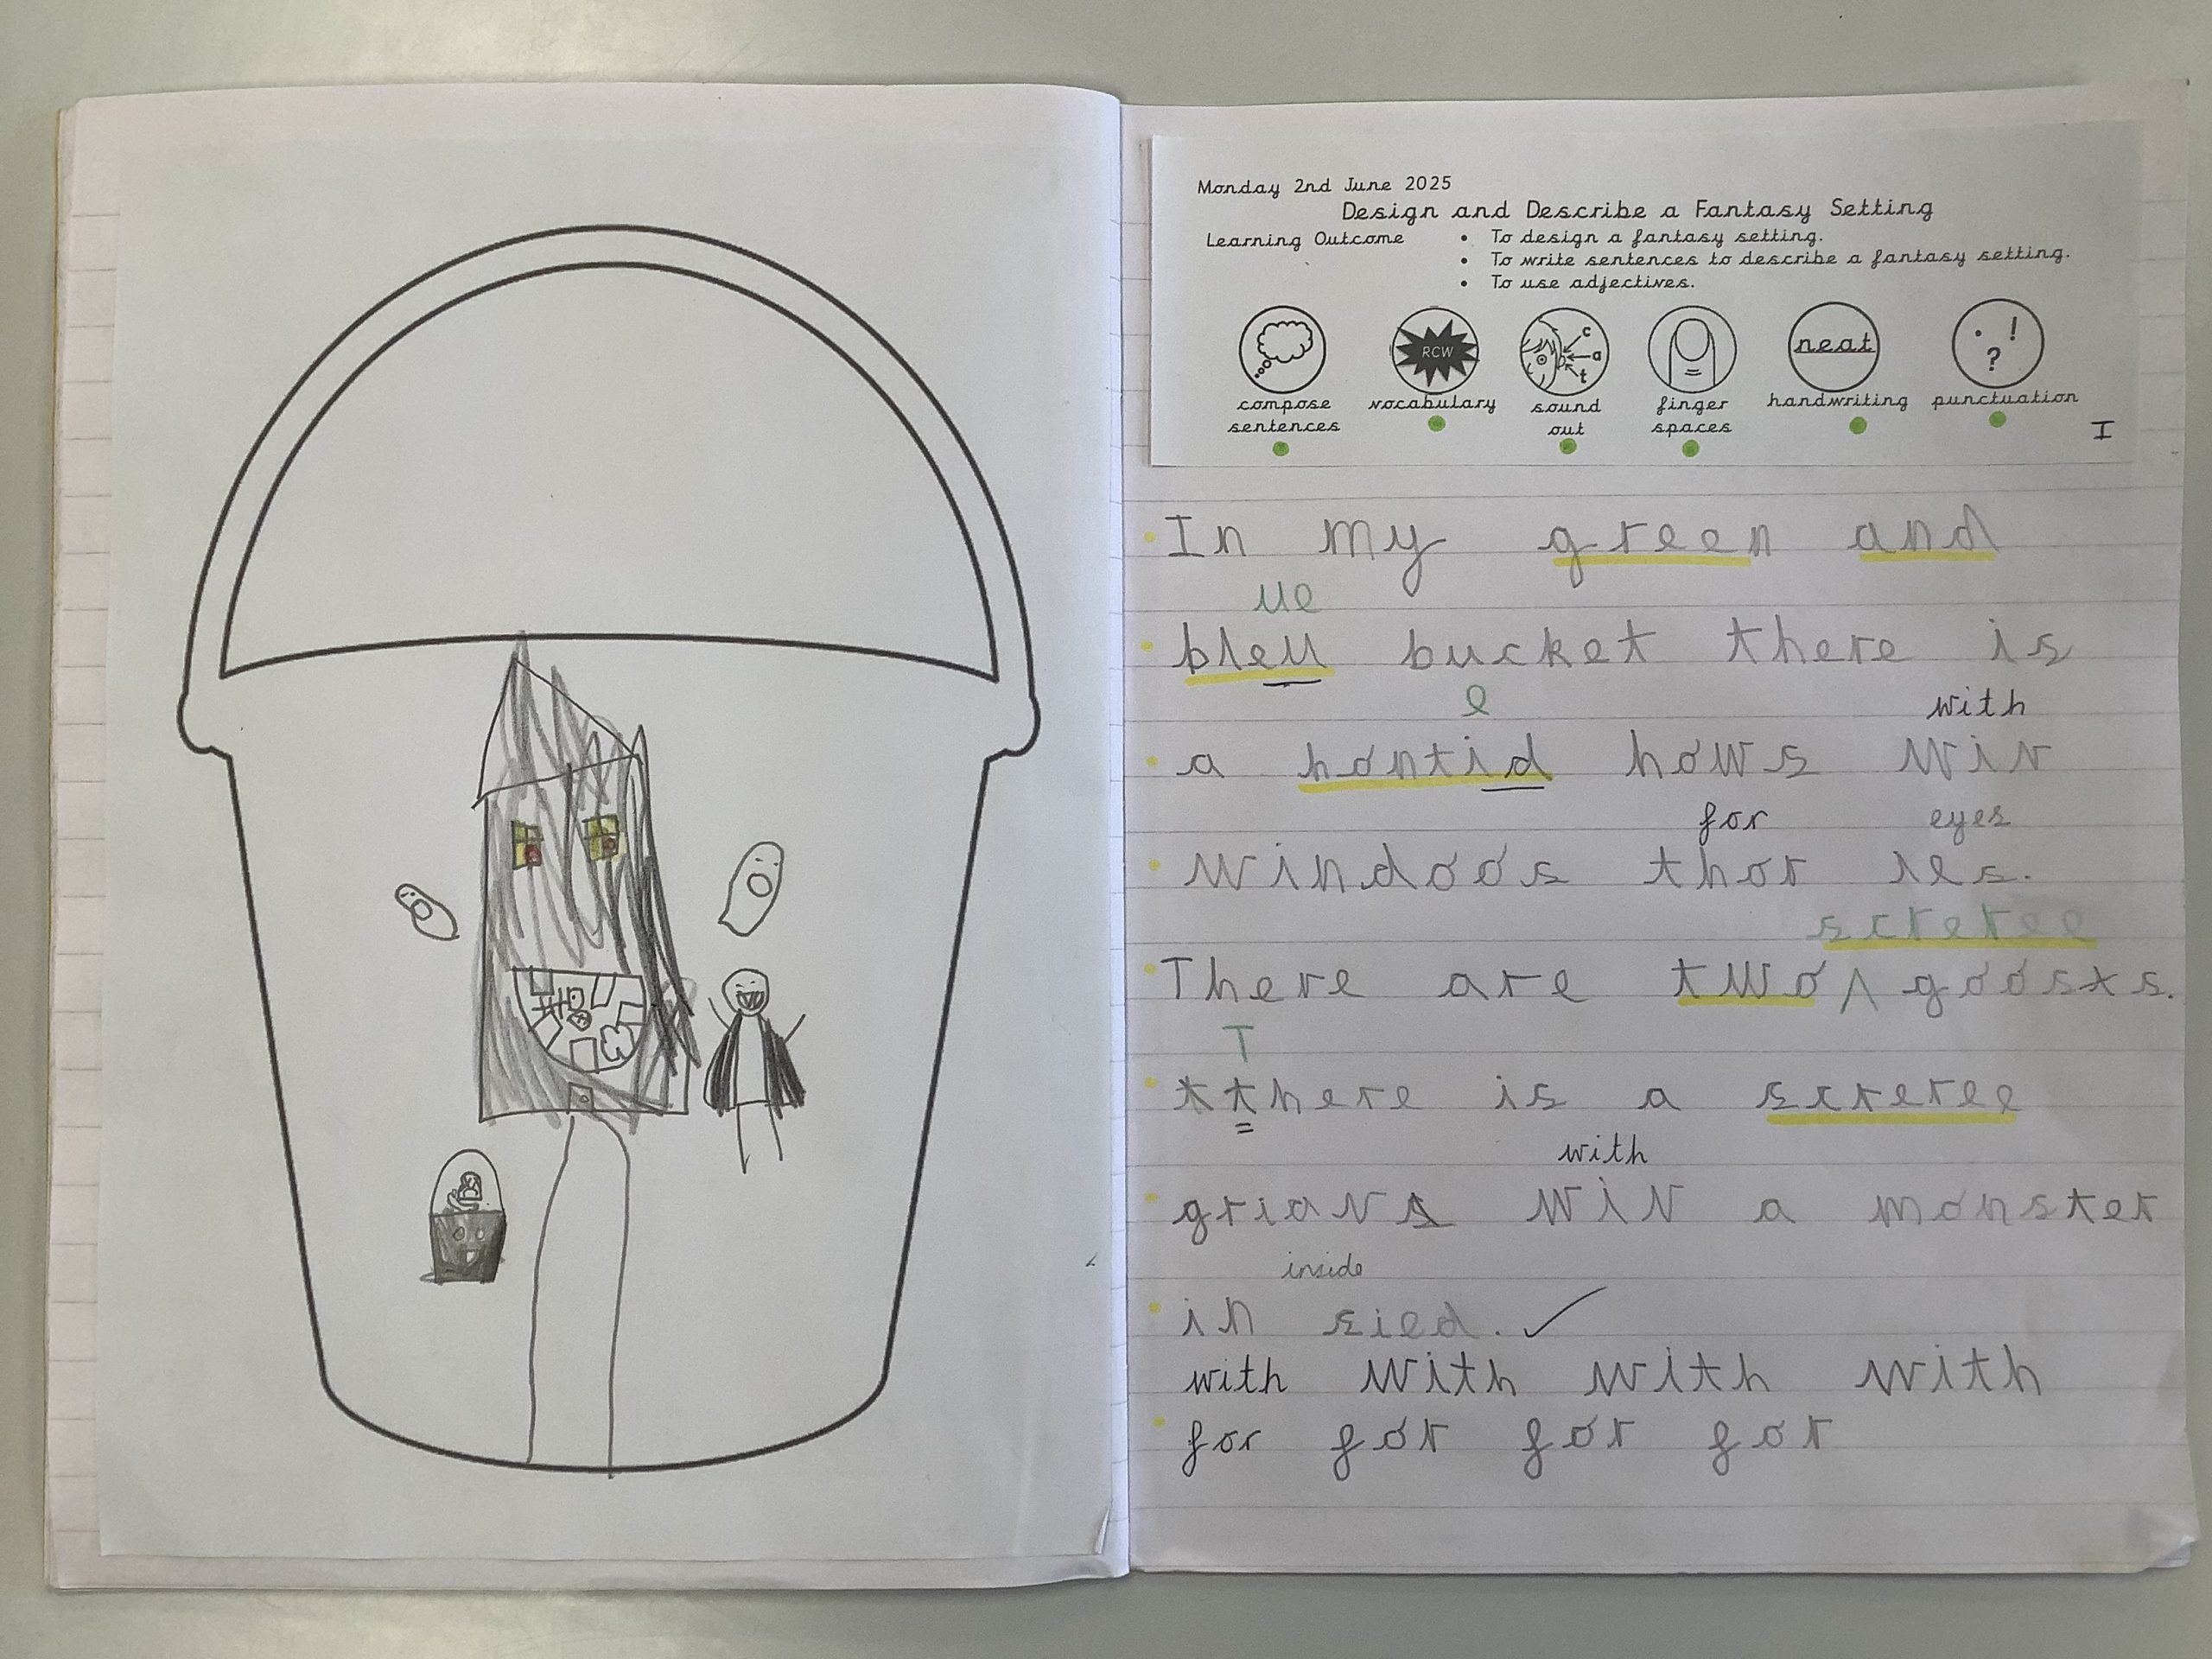 Monday 2nd June 2025
Design and Describe a Fantasy Setting
Learning Outcome
• To design a fantasy setting.
• To write sentences to describe a fantasy setting.
• To use adjectives.
RCW
c
a
t
neat
. ! ?
compose sentences
vocabulary
sound out
finger spaces
handwriting
punctuation
I
In my green and
ue
bleu bucket there is
e with
a hontid hows wiv
for eyes
windoos thor ies.
screree
There are two ^ goosts.
T
tthere is a screree
with
griavs wiv a monster
inside
in sied. ✓
with with with with
for for for for